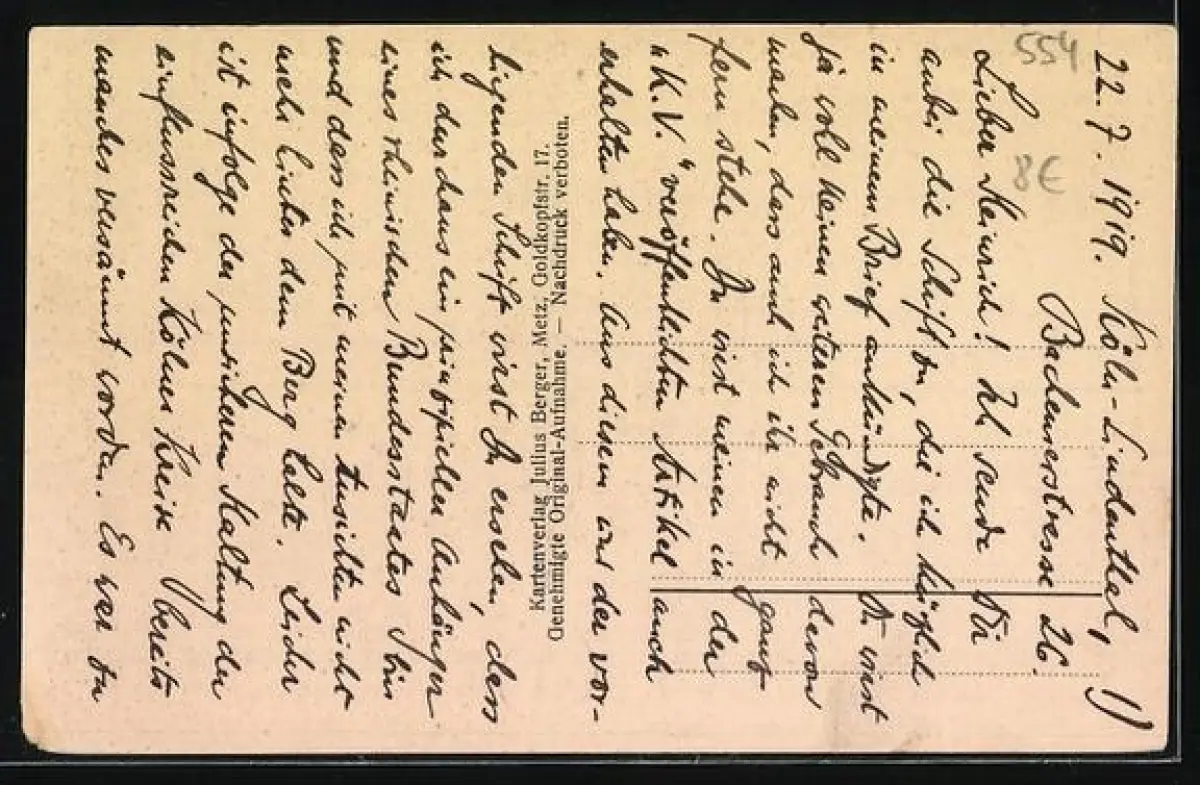 22. 7. 1919. Köln-Lindenthal, 1)
Bachemerstrasse 26.
Lieber Heinrich! Ich sende Dir
anbei die Schrift zu, die ich kürzlich
in meinem Brief ankündigte. Du wirst
ja wohl keinen weiteren Gebrauch davon
machen, dass auch ich ihr nicht ganz
fern stehe. Du wirst meinen in der
"K.V." veröffentlichten Artikel auch
erhalten haben. Aus diesem und der vor-
liegenden Schrift wirst Du ersehen, dass
ich durchaus ein prinzipieller Anhänger
eines rheinischen Bundesstaates bin
und dass ich mit meinen Ansichten nicht
mehr hinter dem Berg halte. Leider
ist infolge der unsicheren Haltung der
einflussreichen Kölner Kreise bereits
manches versäumt worden. Es war zu
Kartenverlag Julius Berger, Metz, Goldkopfstr. 17.
Genehmigte Original-Aufnahme. — Nachdruck verboten.
554
8€